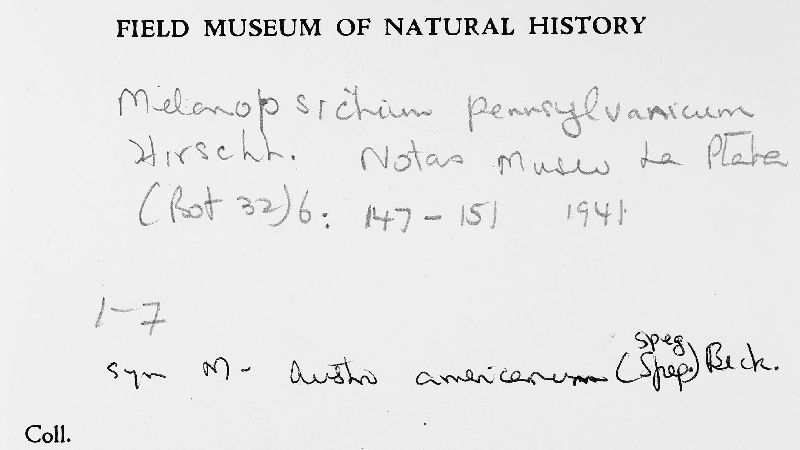 FIELD MUSEUM OF NATURAL HISTORY
Melanopsichium pennsylvanicum
Hirschh. Notas Museo La Plata
(Bot 32) 6: 147-151 1941
1-7
speg
syn M- Austro americanum (Speg.) Beck.
Coll.